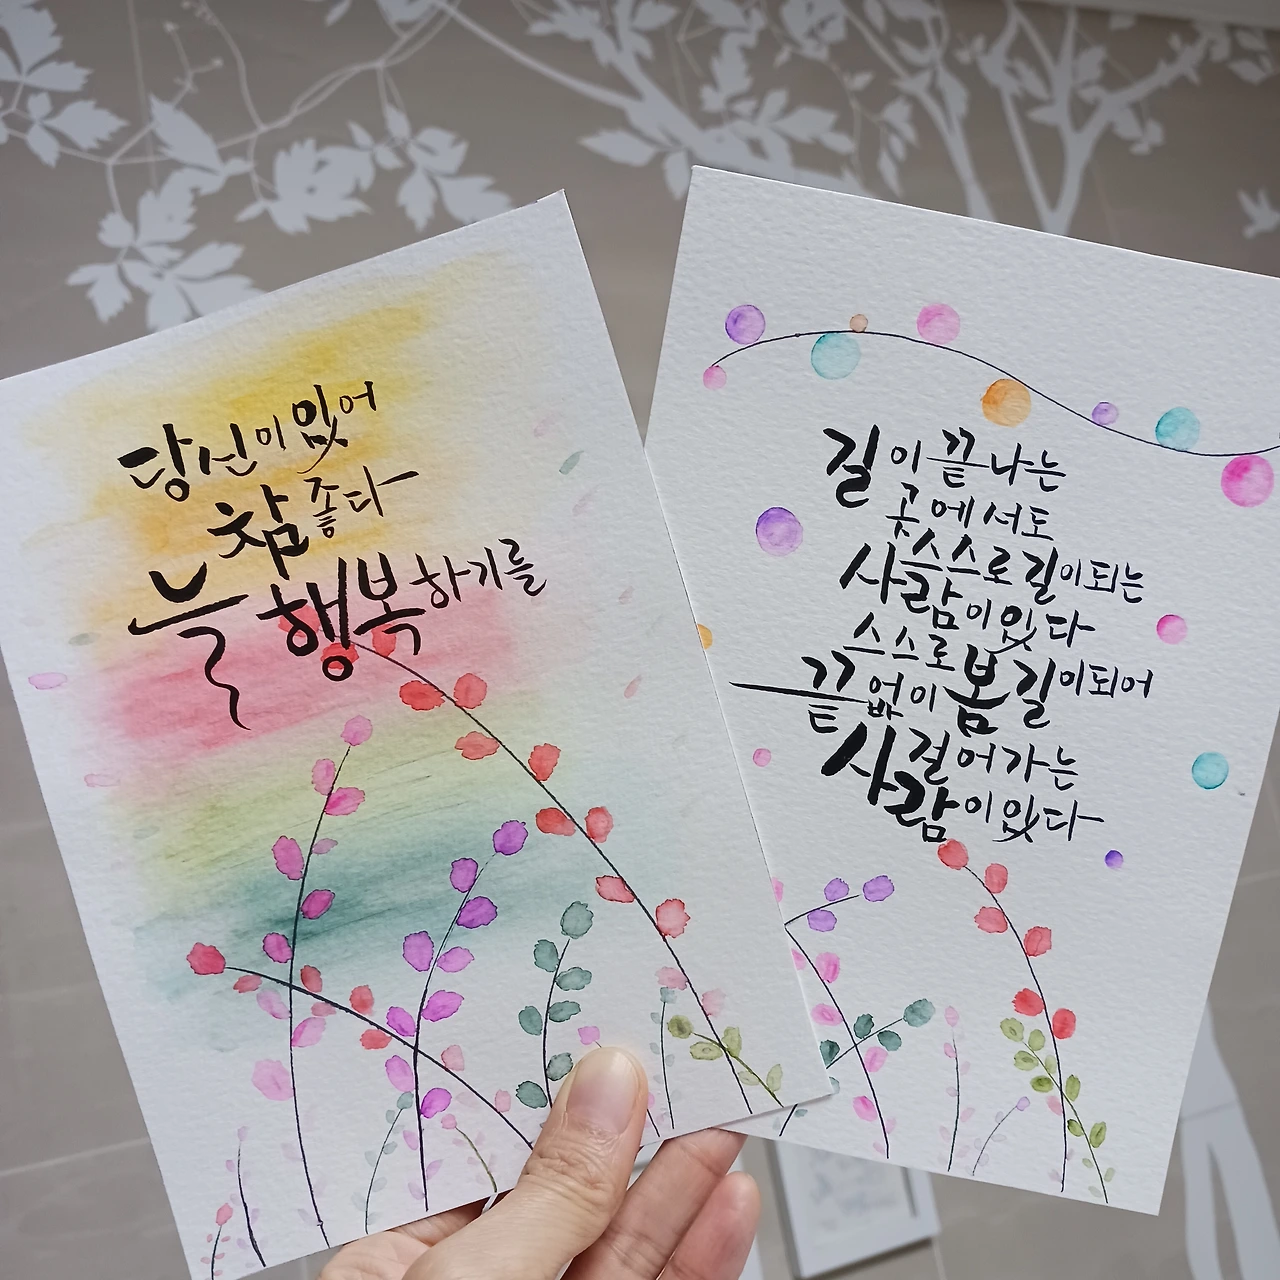 당신이 있어
참 좋다
늘 행복하기를
길이 끝나는
곳에서도
스스로 길이 되는
사람이 있다
스스로 봄길이 되어
끝없이
걸어가는
사람이 있다